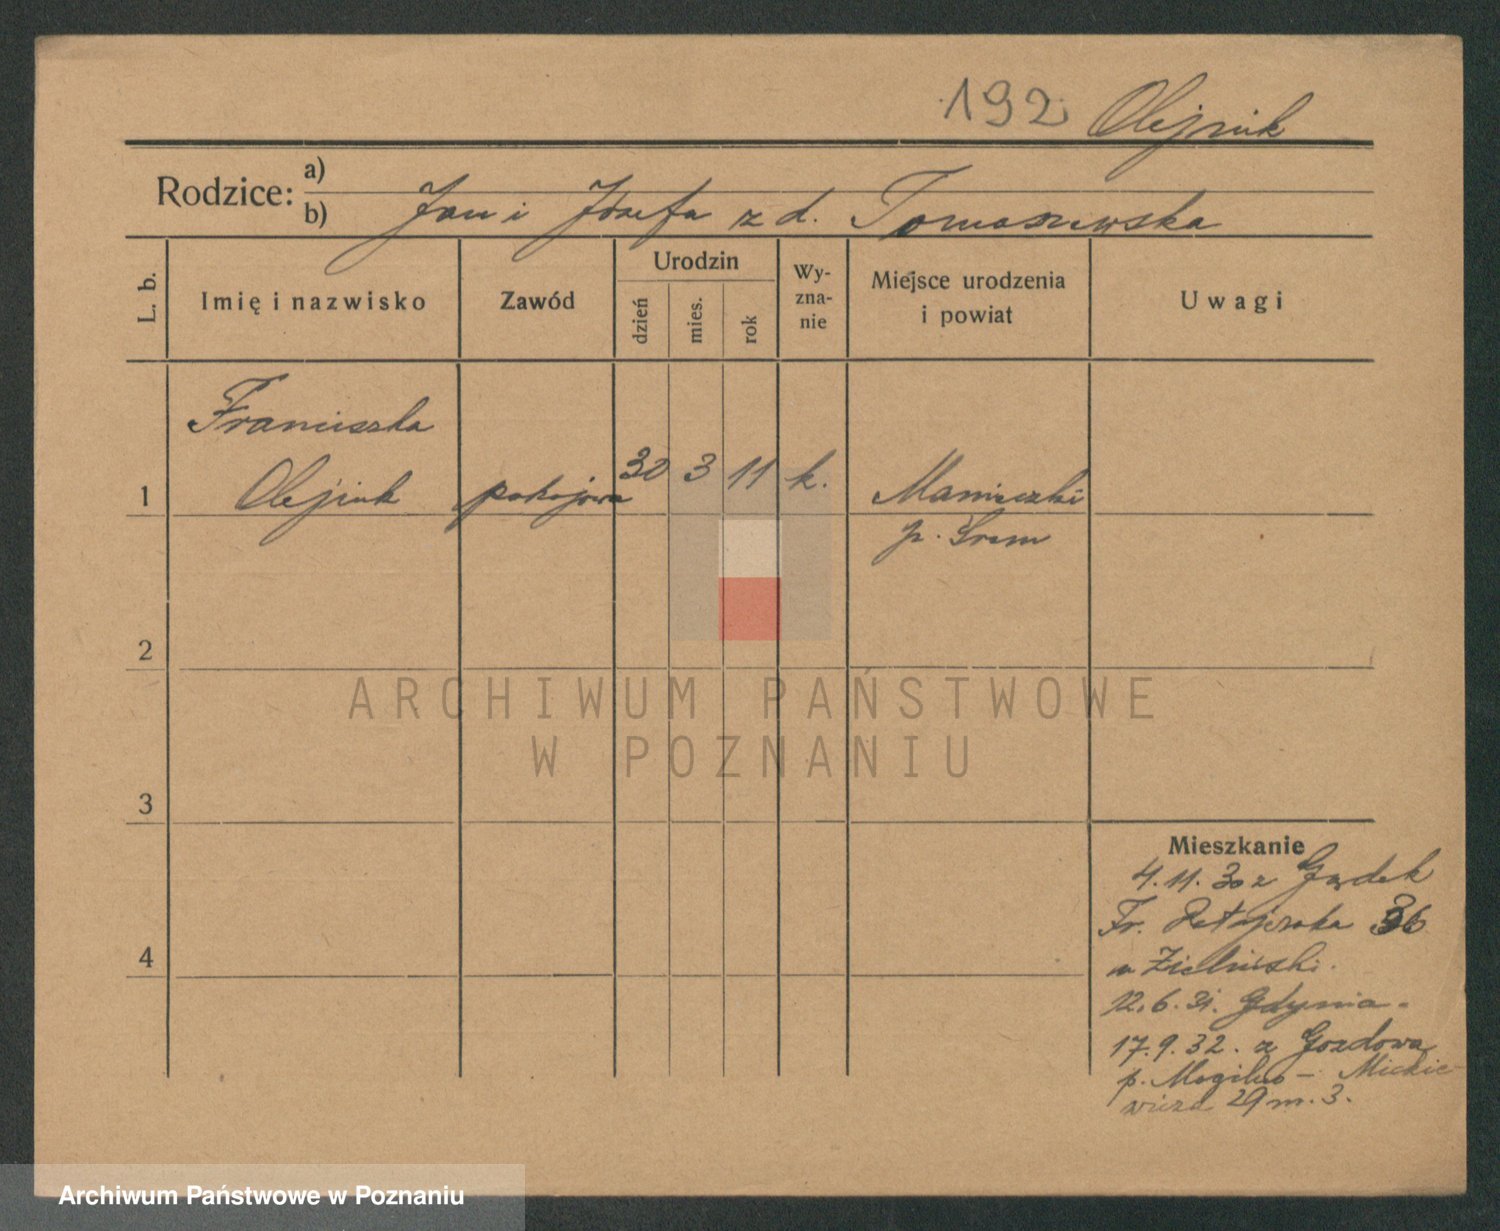 192 Olejnik
Rodzice: a)
b) Jan i Józefa z d. Tomaszewska
L. b.
Imię i nazwisko
Zawód
Urodzin
dzień
mies.
rok
Wy-
zna-
nie
Miejsce urodzenia
i powiat
Uwagi
Franciszka
1 Olejnik pokojowa 30 3 11 k. Manieczki
p. Śrem
2
ARCHIWUM PAŃSTWOWE
W POZNANIU
3
Mieszkanie
4.11.30 z
Fr. Ratajczaka 36
4
u Zieliński.
12.6.31. Gdynia -
17.9.32. z Gozdowa
p. Mogilno - Mickie
wicza 29 m. 3.
Archiwum Państwowe w Poznaniu